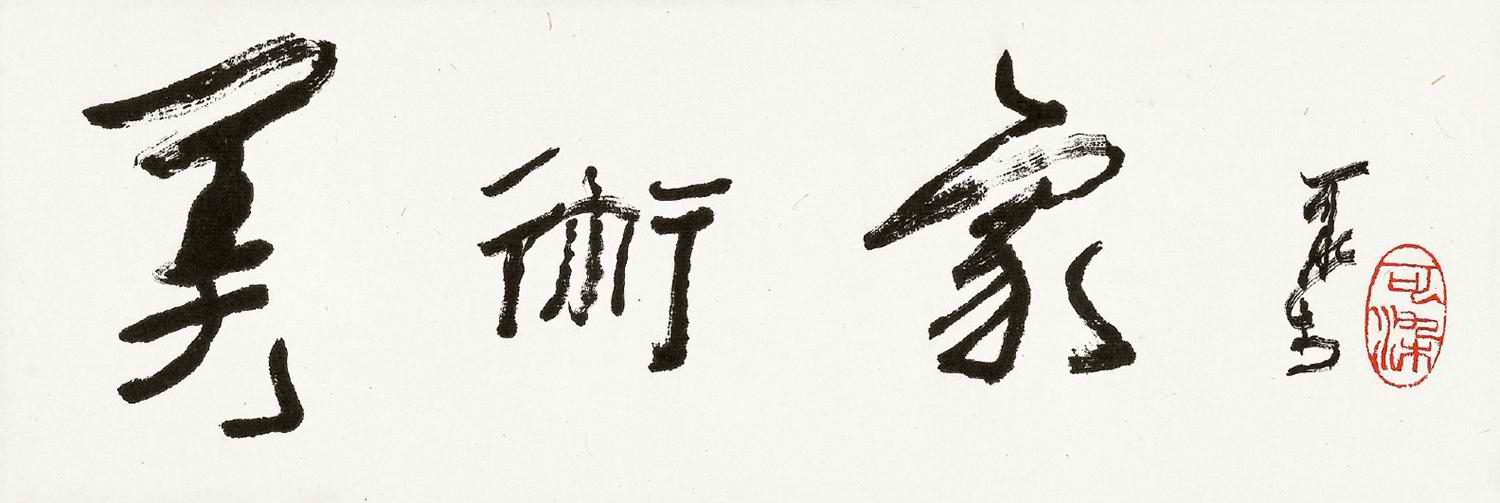 美術家
可染
可染